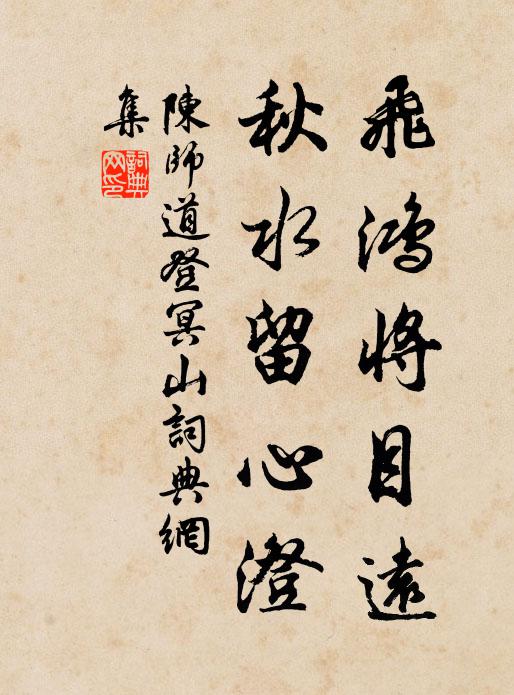 飛鴻將目遠
秋水留心澄
陳師道登冥山詞典網
集
詞典
网印